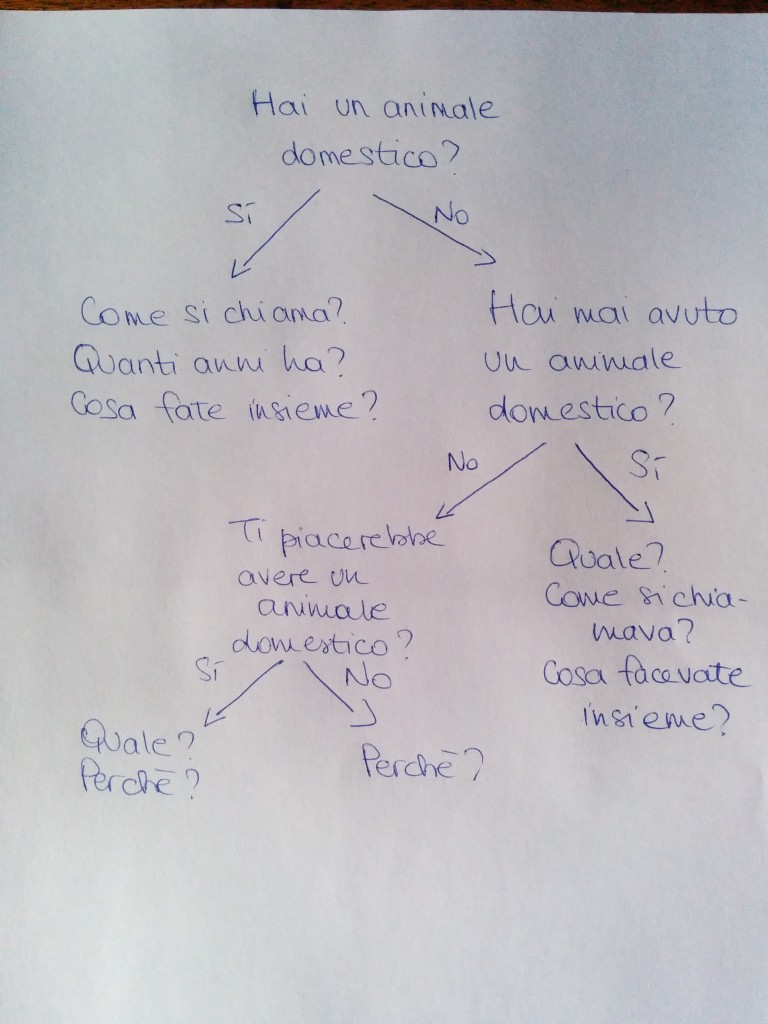 Hai un animale
domestico?
Sī
No
Come si chiama?
Quanti anni ha?
Cosa fate insieme?
Hai mai avuto
un animale
domestico?
No
Sī
Ti piacerebbe
avere un
animale
domestico?
Quale?
Come si chia-
mava?
Cosa facevate
insieme?
Sī
No
Quale?
Perchē?
Perchē?